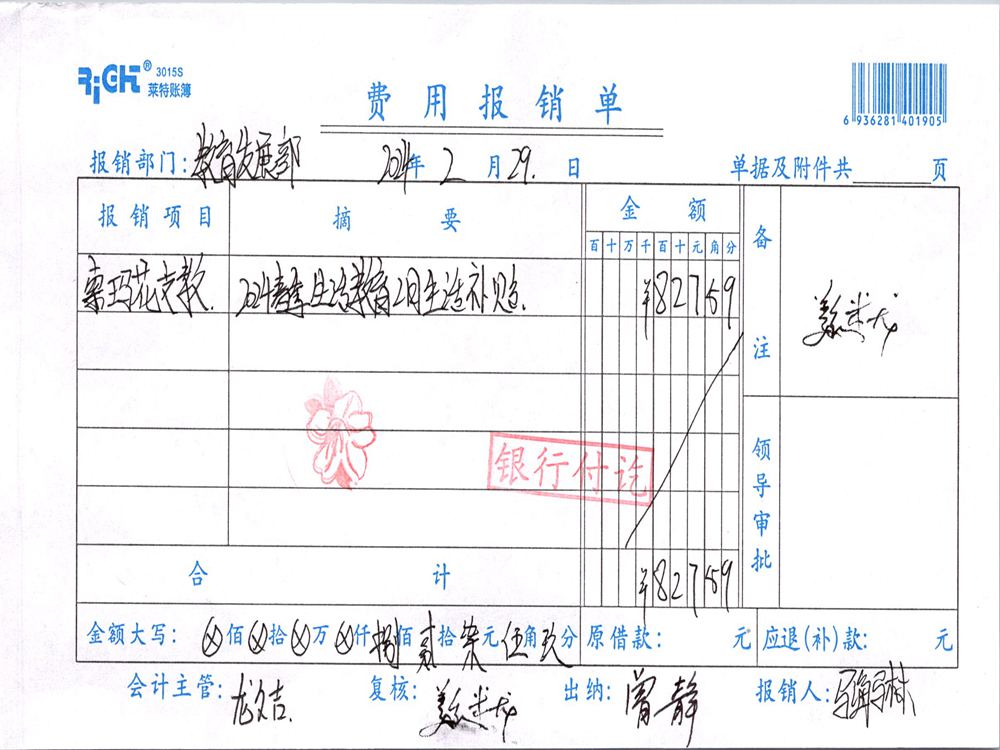 RiCHT® 3015S
莱特账簿
费用报销单
6 936281 401905
报销部门:教育发展部 2024年2月29.日 单据及附件共 页
报销项目 摘要 金额 备注
百十万千百十元角分
索玛花支教. 2024春季 生活教育2月生活补贴. ¥82759
龙米
银行付讫
领导审批
合计 ¥82759
金额大写: ⊗佰⊗拾⊗万⊗仟捌佰贰拾柒元伍角玖分 原借款: 元 应退(补)款: 元
会计主管:龙文吉. 复核: 出纳:曾静 报销人: